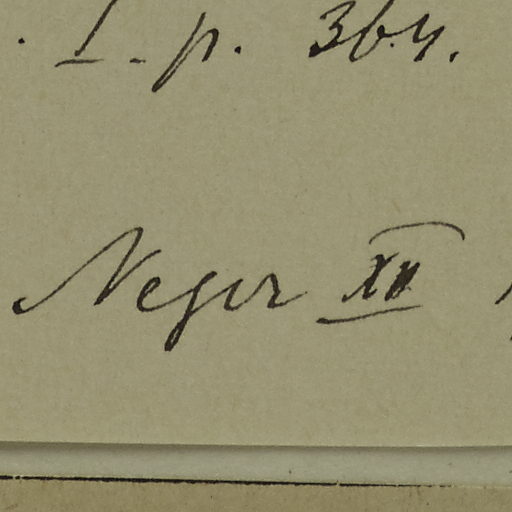 . I. p. 364.
Neger XII